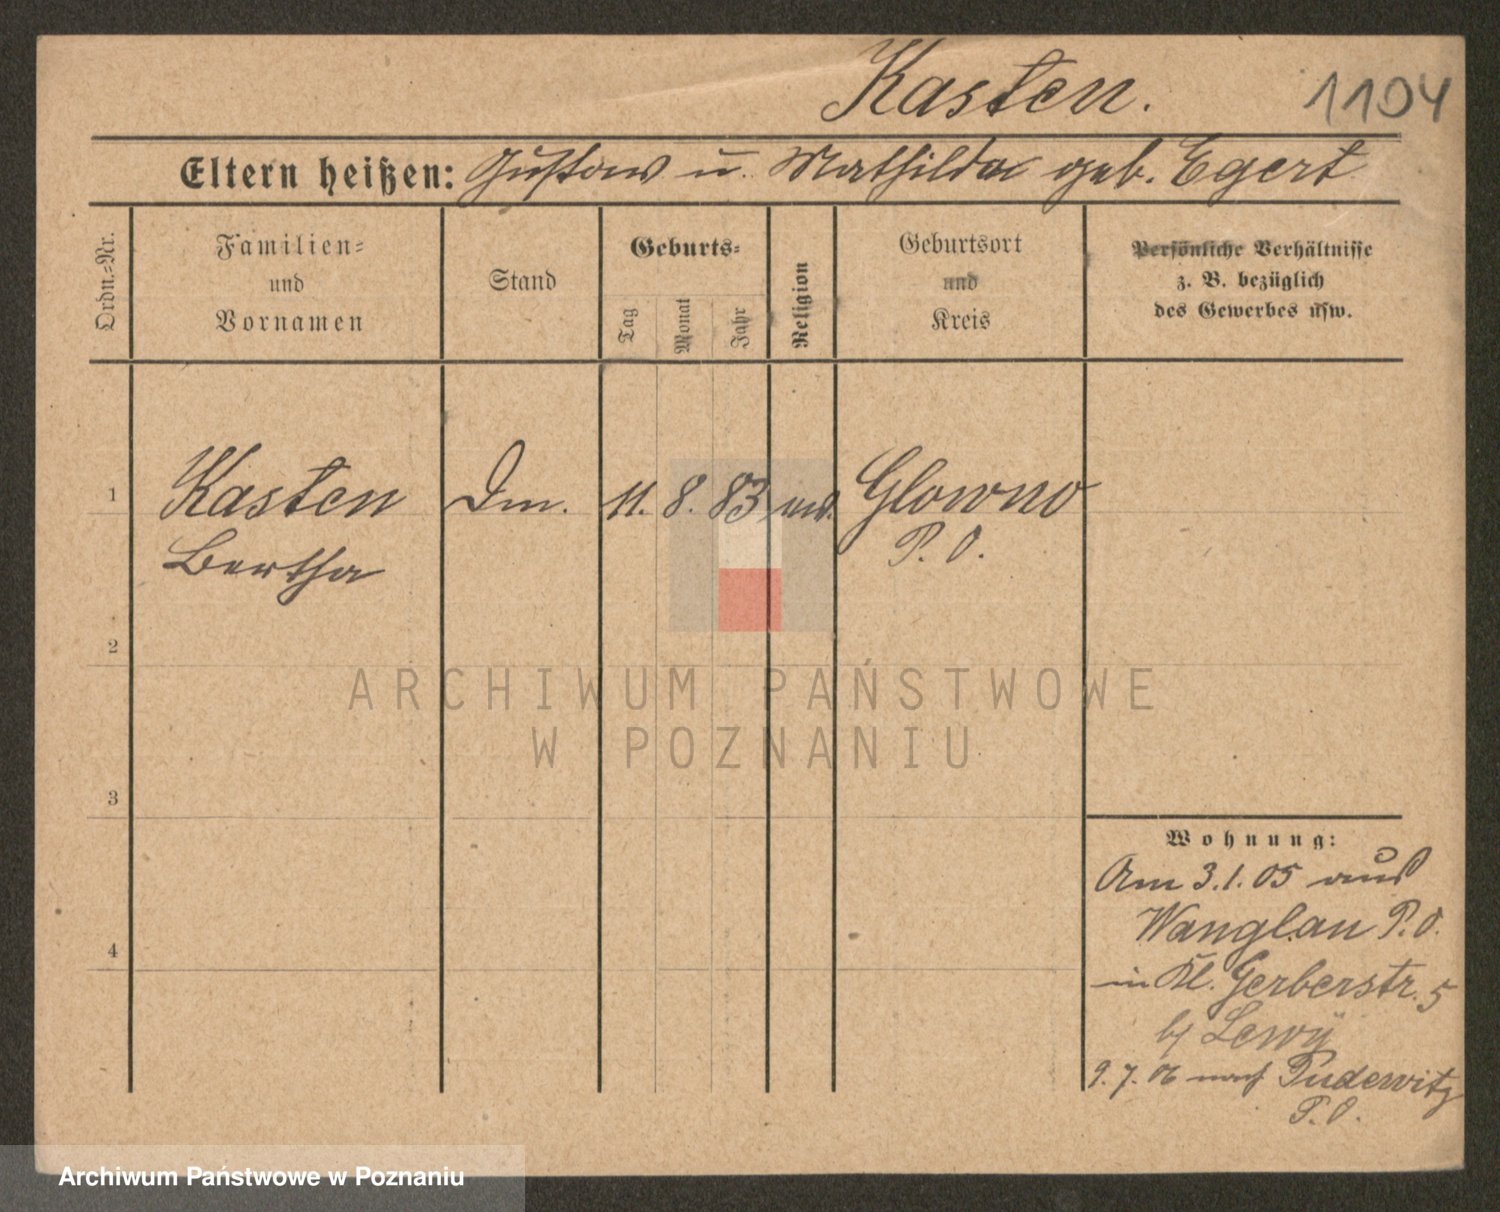 Kasten.
1104
Eltern heißen: Gustav u. Mathilda geb. Egert
Ordn.-Nr.
Familien-
und
Vornamen
Stand
Geburts-
Tag
Monat
Jahr
Religion
Geburtsort
und
Kreis
Persönliche Verhältnisse
z. B. bezüglich
des Gewerbes usw.
1
Kasten
Bertha
Dm.
11.
8.
83
Glowno
P. O.
2
3
4
ARCHIWUM PAŃSTWOWE
W POZNANIU
Wohnung:
Am 3.1.05 aus
Wanglau P.O.
in Kl. Gerberstr. 5
b/ Lewÿ
9.7.06 nach Pudewitz
P.O.
Archiwum Państwowe w Poznaniu